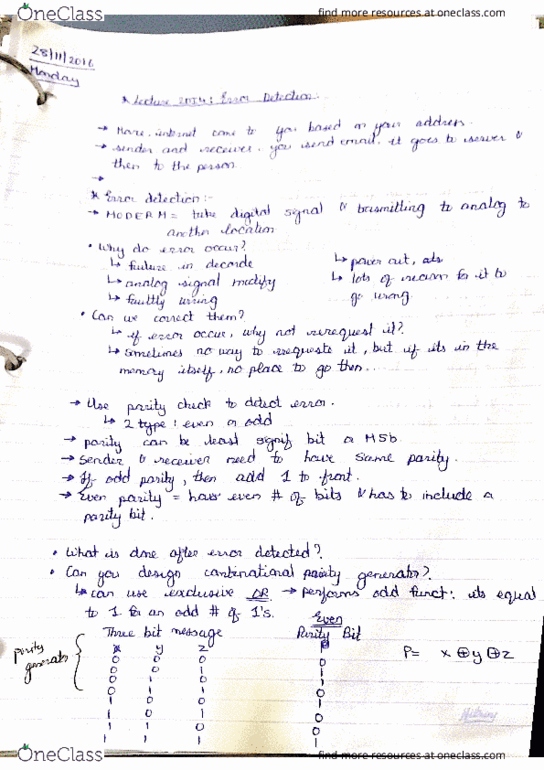 OneClass
find more resources at oneclass.com
28/11/2016
Monday
* Lecture 20: Error Detection
→ internet come to you based on your address.
→ sender and receiver. you send email, it goes to server &
then to the person
→
* Error detection:-
→ MODERM = take digital signal & transmitting to analog to
another location
• Why do error occur?
↳ failure in decode
↳ power out, etc
↳ analog signal modify
↳ lots of reason for it to
↳ faultly wiring
go wrong
• Can we correct them?
↳ if error occur, why not rerequest it?
↳ sometimes no way to rrequeste it, but if its in the
memory itself, no place to go then...
→ Use parity check to detect error.
↳ 2 type: even or odd
→ parity can be least signif bit or MSb.
→ Sender & receiver need to have same parity.
→ If odd parity, then add 1 to front.
→ Even parity = have even # of bits & has to include a
parity bit.
• What is done after error detected?
• Can you design combenational parity generator?
↳ can use exclusive OR → performs odd funct: its equal
to 1 for an odd # of 1's.
Even
Three bit message Parity Bit
parity generator
x y z P
P= x⊕y⊕z
0 0 0 0
OneClass
find more resources at oneclass.com